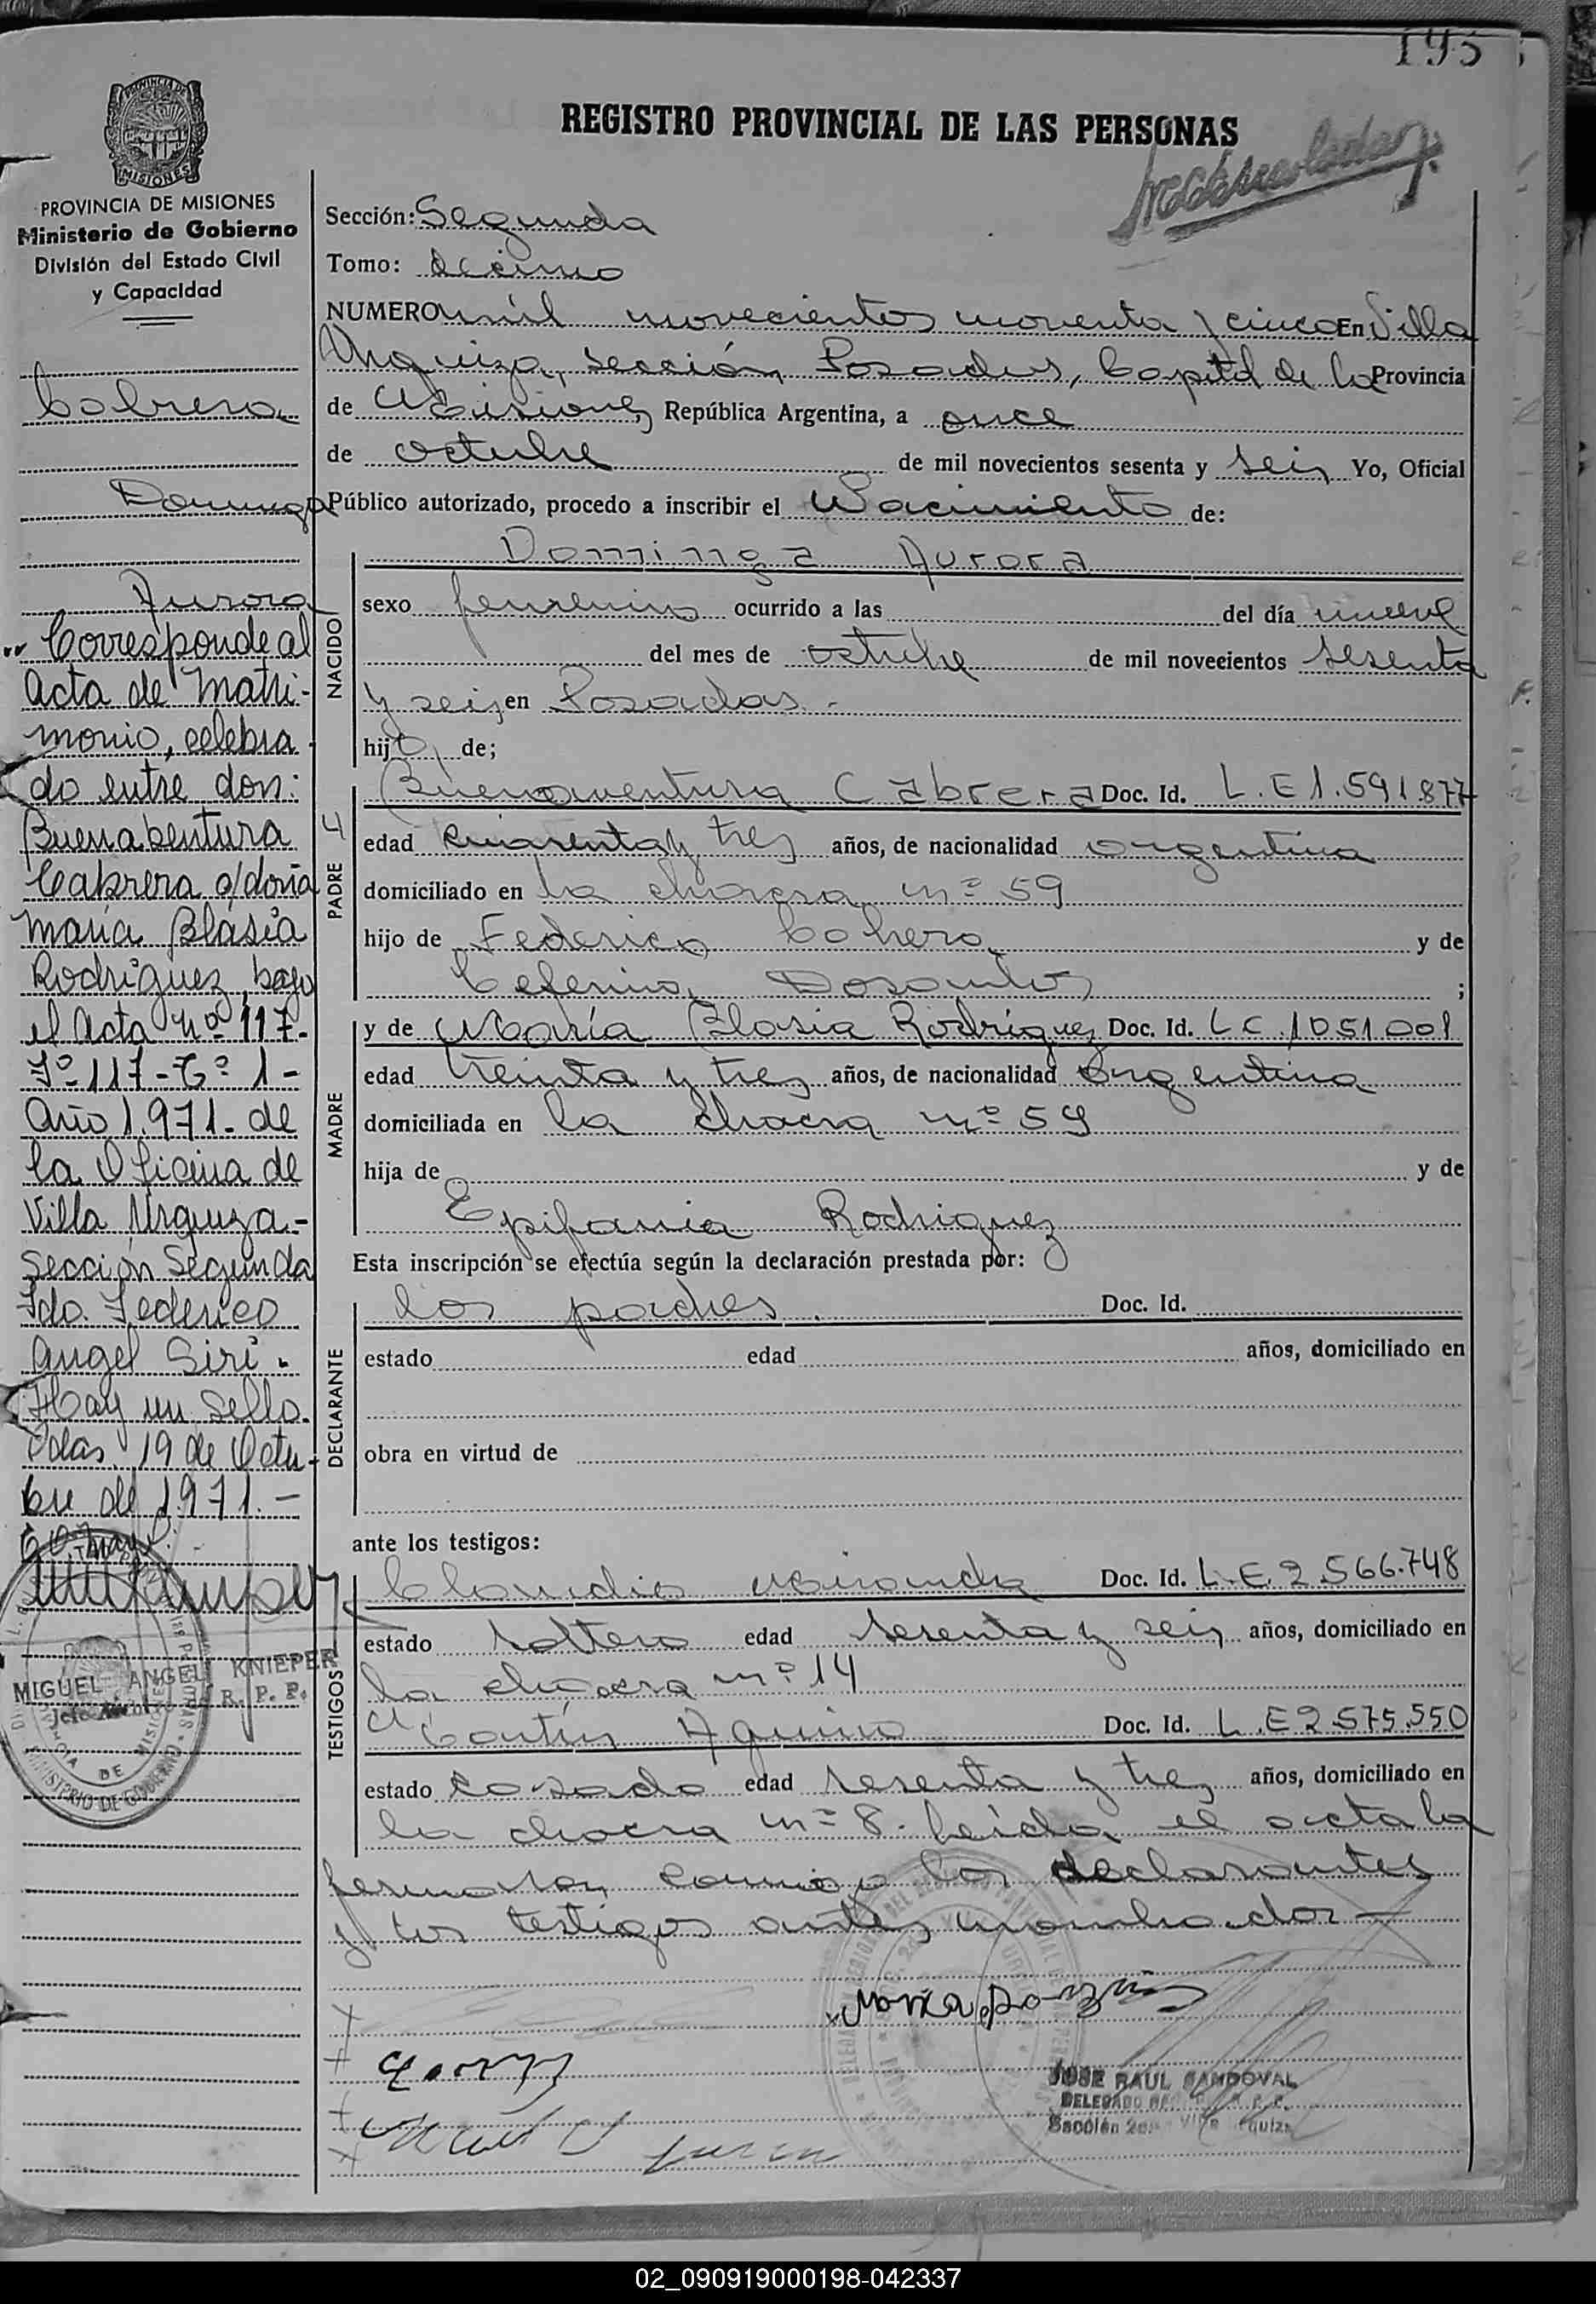 195
REGISTRO PROVINCIAL DE LAS PERSONAS
PROVINCIA DE MISIONES
Ministerio de Gobierno
División del Estado Civil
y Capacidad
Cabrera
Dominga
Aurora
Corresponde al
Acta de Matri-
monio, celebra
do entre don:
Buenabentura
Cabrera c/doña
María Blásia
Rodríguez, bajo
el Acta Nº 117-
Fº-117-Tº 1-
Año 1.971- de
la Oficina de
Villa Urquiza-
Sección Segunda
Fdo. Federico
Angel Siri.
Hay un sello.
Pdas. 19 de Octu-
bre de 1971.-
MIGUEL ANGEL KNIEPER
R. P. P.
Sección: Segunda
Tomo: décimo
NUMERO mil novecientos noventa y cinco En Villa
Urquiza, sección Posadas, Capital de la Provincia
de Misiones, República Argentina, a once
de octubre de mil novecientos sesenta y seis Yo, Oficial
Público autorizado, procedo a inscribir el Nacimiento de:
NACIDO
Dominga Aurora
sexo femenino ocurrido a las del día nueve
del mes de octubre de mil novecientos sesenta
y seis en Posadas.-
hija de;
PADRE
Buenaventura Cabrera Doc. Id. L.E 1.591.877
edad cuarenta y tres años, de nacionalidad argentina
domiciliado en la chacra nº 59
hijo de Federico Cabrera y de
Ceferina Dosantos ;
MADRE
y de María Blasia Rodríguez Doc. Id. L C. 1051001
edad treinta y tres años, de nacionalidad argentina
domiciliada en la chacra nº 59
hija de y de
Epifania Rodriguez
Esta inscripción se efectúa según la declaración prestada por:
DECLARANTE
los padres. Doc. Id.
estado edad años, domiciliado en
obra en virtud de
ante los testigos:
TESTIGOS
Claudio Miranda Doc. Id. L.E. 2.566.748
estado soltero edad sesenta y seis años, domiciliado en
la chacra nº 14
Martín Aquino Doc. Id. L.E 2.575.550
estado casado edad sesenta y tres años, domiciliado en
la chacra nº 8. Leída el acta la
firmaron conmigo los declarantes
y los testigos antes nombrados-
JOSE RAUL SANDOVAL
DELEGADO
Sección 2da. Villa Urquiza
02_090919000198-042337